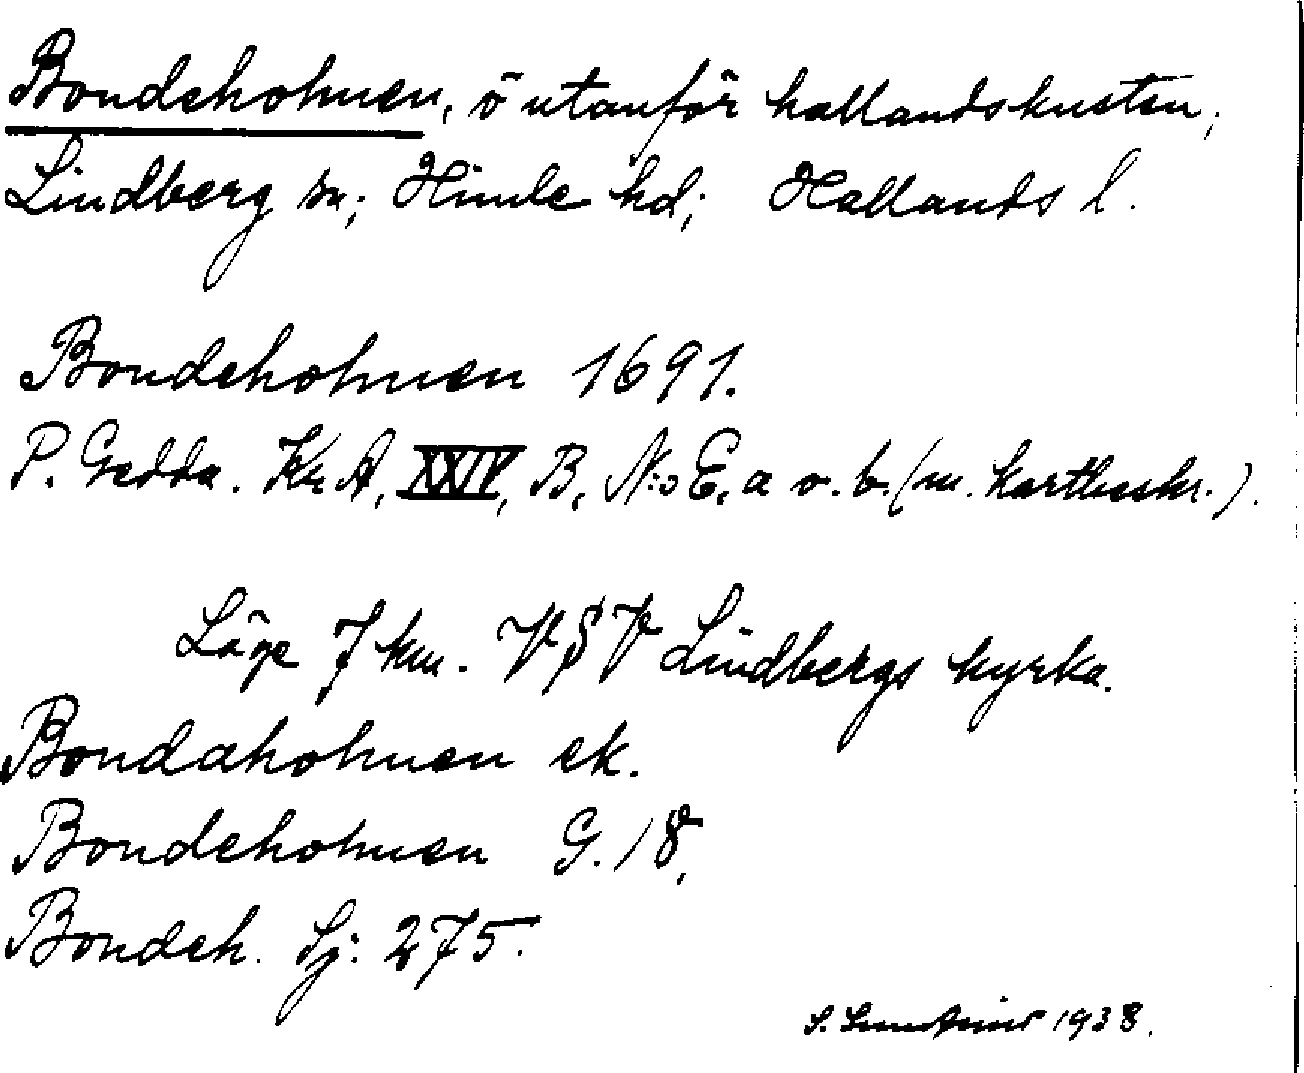 Bondeholmen, ö utanför hallandskusten,
Lindberg sn; Himle hd; Hallands l.
Bondeholmen 1691.
P. Gedda. Kr. A, XXIV, B, N:o E, a o. b. (m. kartbeskr.).
Läge 7 km. VSV Lindbergs kyrka.
Bondaholmen ek.
Bondeholmen G. 18,
Bondeh. Sj: 275.
S. 1938.